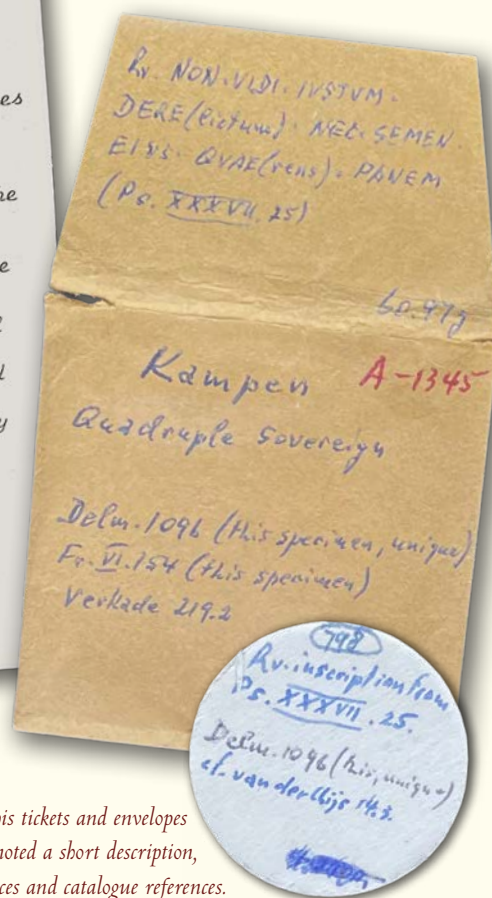 es
he
e
y
Rv. NON·VIDI·IVSTVM·
DERE(lictum)· NEC·SEMEN·
EIVS· QVAE(rens)· PANEM
(Ps. XXXVII. 25)
60.97g
Kampen A-1345
Quadruple Sovereign
Delm. 1096 (this specimen, unique)
Fr. VI.154 (this specimen)
Verkade 219.2
798
Rv. inscription from
Ps. XXXVII. 25.
Delm. 1096 (this, unique)
cf. van der Chijs 14.3.
is tickets and envelopes
noted a short description,
ces and catalogue references.